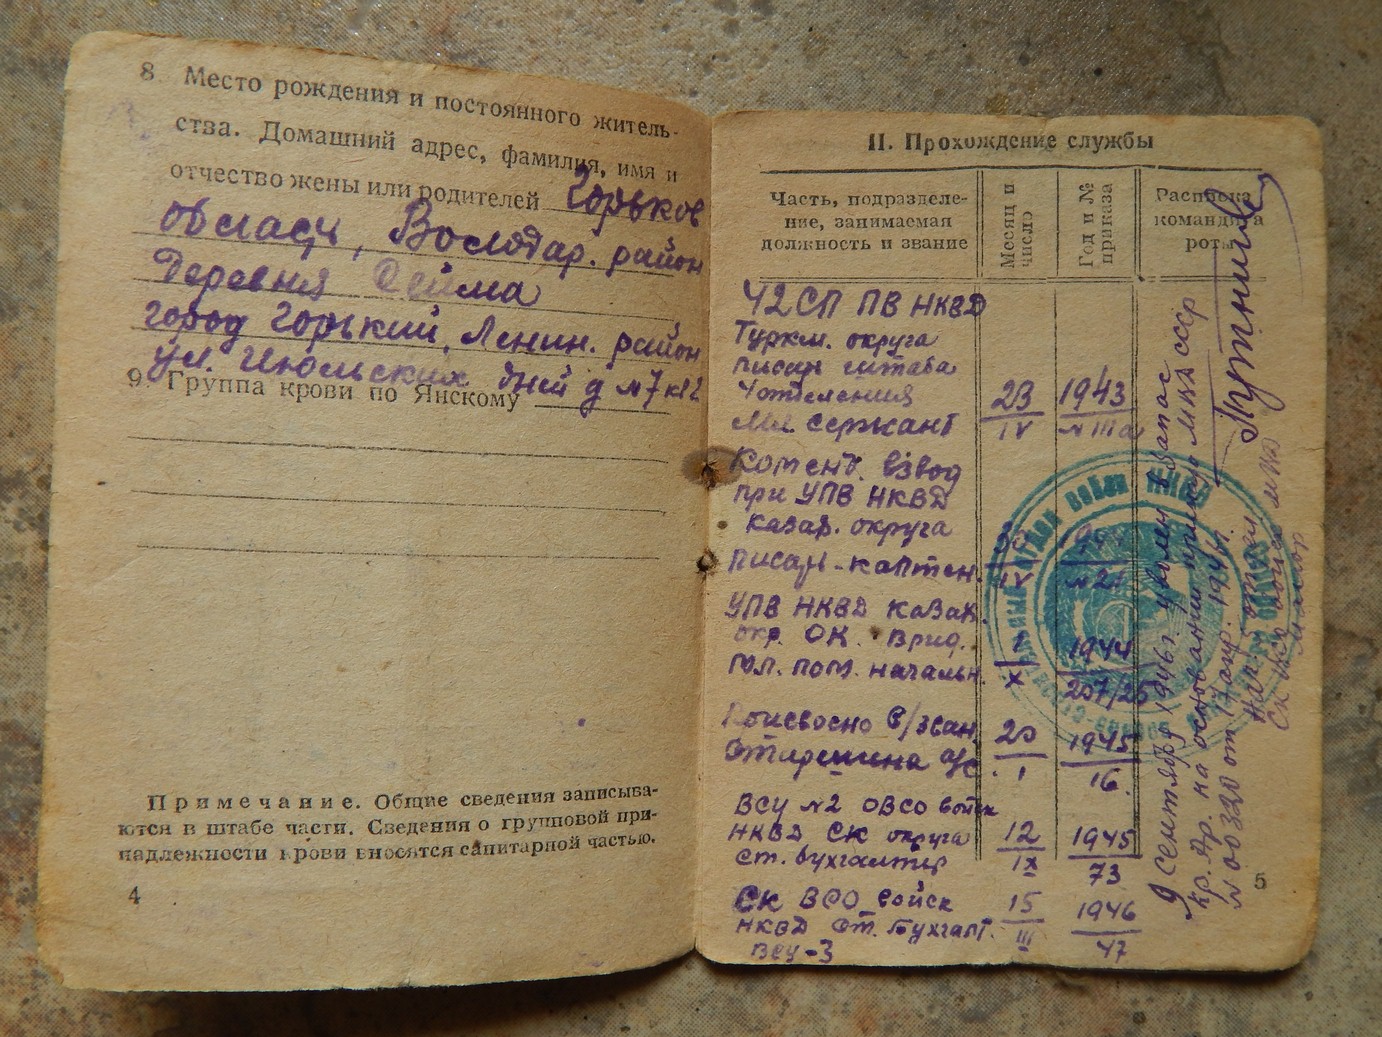 8. Место рождения и постоянного житель-
ства. Домашний адрес, фамилия, имя и
отчество жены или родителей Горьков
область, Володар. район
Деревня Сейма
город Горький, Ленин. район
ул. Июльских дней д №7 к 12
9. Группа крови по Янскому
Примечание. Общие сведения записыва-
ются в штабе части. Сведения о групповой при-
надлежности крови вносятся санитарной частью.
4
II. Прохождение службы
Часть, подразделе-
ние, занимаемая
должность и звание
Месяц и
число
Год и №
приказа
Расписка
командира
роты
42 СП ПВ НКВД
Туркм. округа
писарь штаба
Мл. сержант
23
IV
1943
Коменд. взвод
при УПВ НКВД
Казах. округа
писарь-каптен.
IV
УПВ НКВД Казах.
окр. ОК. Врид.
пом. начальн.
X
1944
207/25
Присвоено в/зван.
Старшина а/с
20
I
1945
16.
ВСУ №2 ОВСО войск
НКВД СК округа
ст. бухгалтер
12
IX
1945
73
СК ВСО войск
НКВД Ст. бухгалт.
ВСУ-3
15
III
1946
47
9 сентября 1946 г. уволен в запас
на основании приказа МВД СССР
№ 00320 от 17 апр. 1946 г.
Нач. отдел
СК войск МВД
5